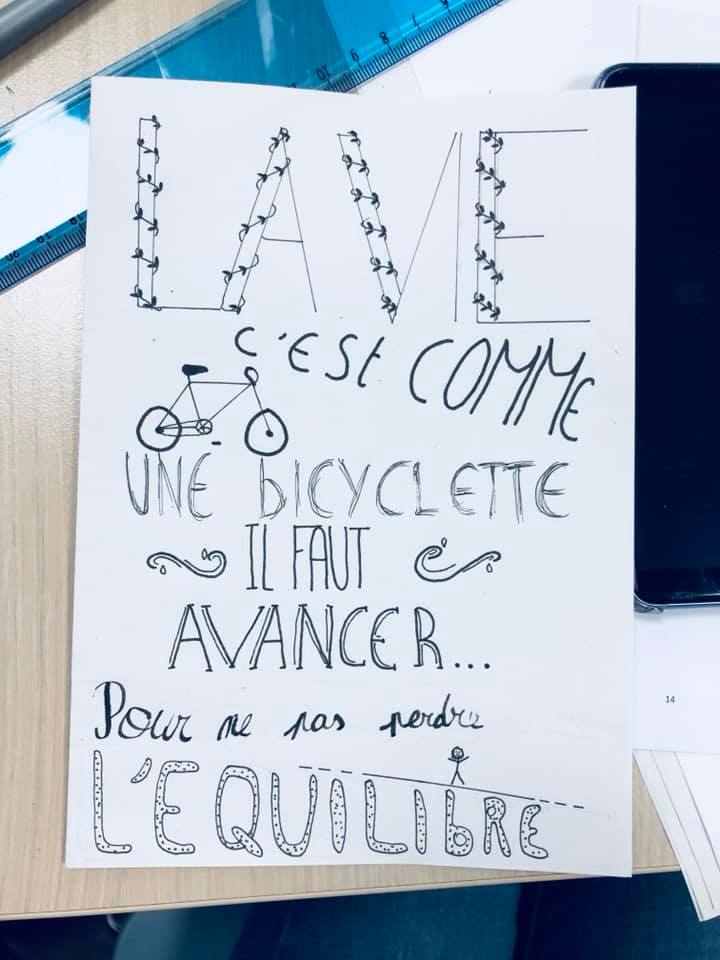 LA VIE
C'ESt COMME
UNE bICYCLETTE
IL FAUT
AVANCER...
Pour ne pas perdre
L'EQUILIbRE
14